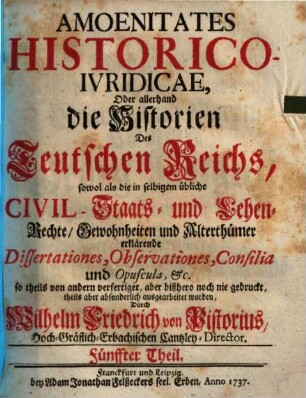 AMOENITATES
HISTORICO-
IVRIDICAE,
Oder allerhand
die Historien
Des
Teutschen Reichs,
sowol als die in selbigem übliche
CIVIL-Staats- und Lehen-
Rechte/ Gewohnheiten und Alterthümer
erklärende
Dissertationes, Observationes, Consilia
und Opuscula, &c.
so theils von andern verfertiget, aber bißhero noch nie gedruckt,
theils aber absonderlich ausgearbeitet worden,
Durch
Wilhelm Friedrich von Pistorius,
Hoch-Gräflich-Erbachischen Cantzley-Director.
Fünffter Theil.
Franckfurt und Leipzig,
bey Adam Jonathan Felßeckers seel. Erben, Anno 1737.